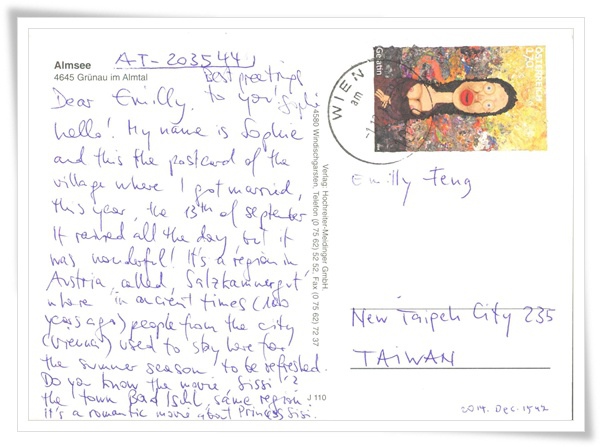 Almsee
4645 Grünau im Almtal
AT-203544
Best greetings
to you!
Dear Emilly,
hello! My name is Sophie
and this the postcard of the
village where I got married,
this year, the 13th of september
It rained all the day, but it
was wonderful! It's a region in
Austria, called, Salzkammergut'
where in ancient times (100
years ago) people from the city
(Vienna) used to stay here for
the summer season, to be refreshed.
Do you know the movie 'Sissi'?
the town Bad Ischl, same region!
It's a romantic movie about Princess Sisi.
Verlag: Hochreiter-Meidinger GmbH.
4580 Windischgarsten, Telefon (0 75 62) 52 52, Fax (0 75 62) 72 37
J 110
WIEN
am
Gelatin
ÖSTERREICH
Emilly Feng
New Taipeh City 235
TAIWAN
2014. Dec. 1542